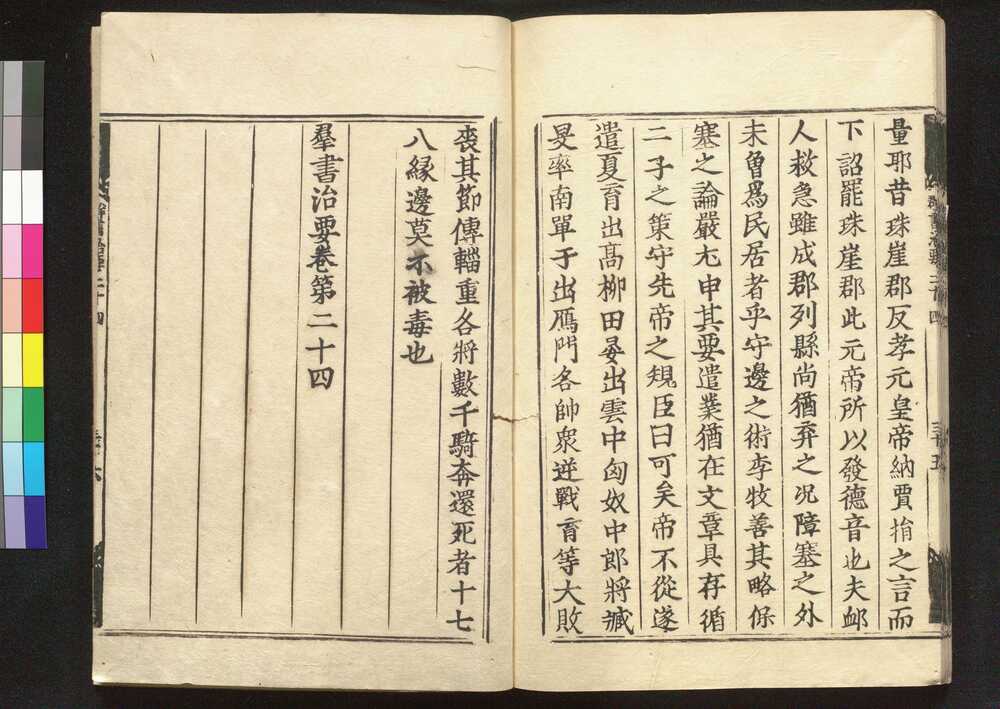 量耶昔珠崖郡反孝元皇帝納賈捐之言而
下詔罷珠崖郡此元帝所以發德音也夫邺
人救急雖成郡列縣尚猶弃之况障塞之外
未曾爲民居者乎守邊之術李牧善其略保
塞之論嚴尤申其要遺業猶在文章具存循
二子之策守先帝之䂓臣曰可矣帝不從遂
遣夏育出髙柳田晏出雲中匈奴中郎將臧
旻率南單于出鴈門各帥衆逆戰育等大敗
喪其節傳輜重各將數千騎奔還死者十七
八縁邊莫不被毒也
羣書治要卷第二十四